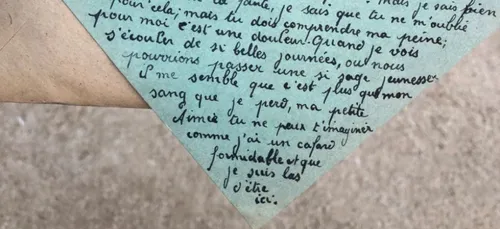 la faute, je sais que tu ne m'oublié
pour cela; mais tu dois comprendre ma peine;
pour moi c'est une douleur. Quand je vois
s'écouler de si belles journées, ou nous
pourrions passer une si gage jeunesse
il me semble que c'est plus que mon
sang que je perd, ma petite
Aimée tu ne peux t'imaginer
comme j'ai un cafard
formidable et que
je suis las
d'être
ici.